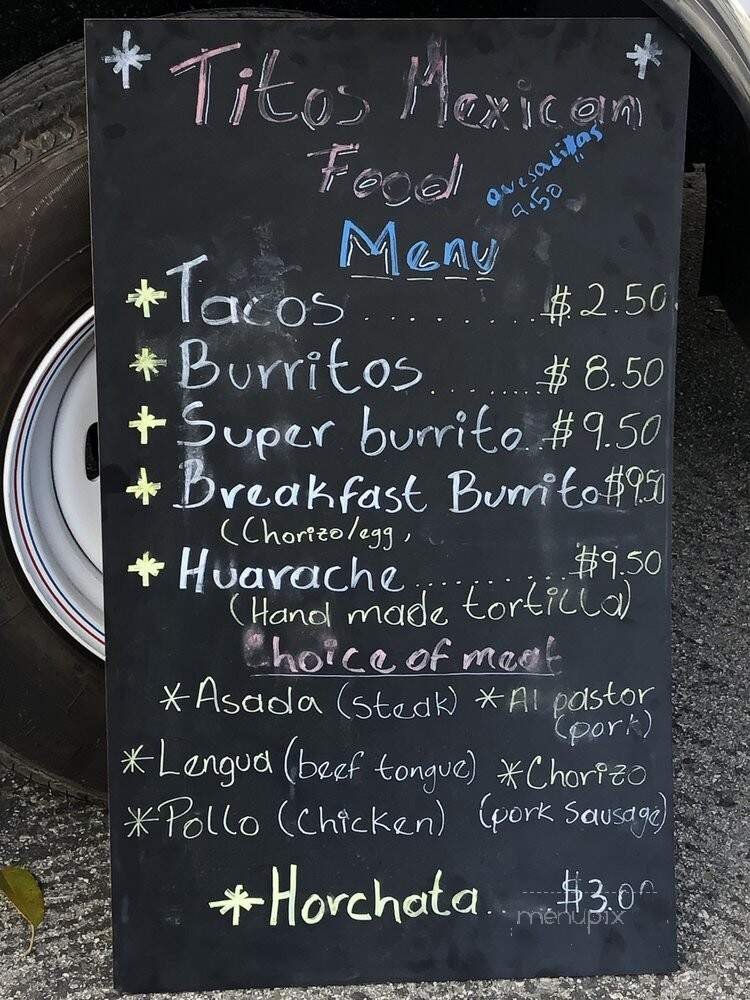 Titos Mexican
Food
Quesadillas
9.50
Menu
Tacos ........ $2.50
Burritos ........ $8.50
Super burrito .. $9.50
Breakfast Burrito $9.50
(Chorizo/egg,
Huarache ............ $9.50
(Hand made tortilla)
Choice of meat
*Asada (steak) *Al pastor
(pork)
*Lengua (beef tongue) *Chorizo
*Pollo (Chicken) (pork Sausage)
*Horchata ..... $3.00
menupix